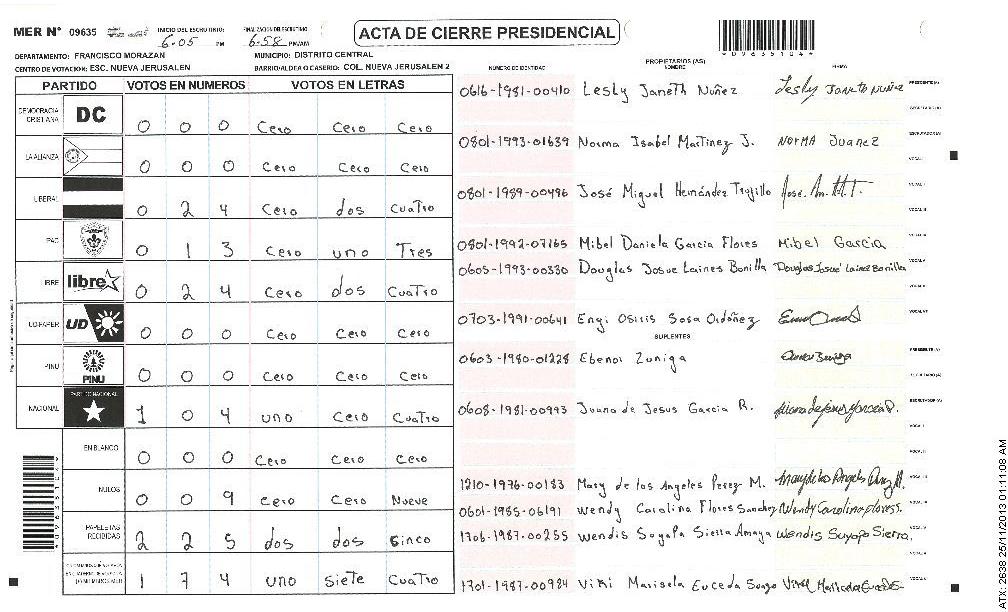 MER N° 09635 INICIO DEL ESCRUTINIO: 6:05 PM FINALIZACION DE ESCRUTINIO 6:58 PM/AM
ACTA DE CIERRE PRESIDENCIAL
DEPARTAMENTO: FRANCISCO MORAZAN MUNICIPIO: DISTRITO CENTRAL
CENTRO DE VOTACION: ESC. NUEVA JERUSALEN BARRIO/ALDEA O CASERIO: COL. NUEVA JERUSALEN 2
PARTIDO VOTOS EN NUMEROS VOTOS EN LETRAS
DEMOCRACIA CRISTIANA DC 0 0 0 Cero Cero Cero
LA ALIANZA 0 0 0 Cero Cero Cero
LIBERAL 0 2 4 Cero dos Cuatro
PAC 0 1 3 Cero uno Tres
LIBRE libre 0 2 4 Cero dos Cuatro
UD/FAPER UD 0 0 0 Cero Cero Cero
PINU PINU 0 0 0 Cero Cero Cero
NACIONAL PARTIDO NACIONAL 1 0 4 uno Cero Cuatro
EN BLANCO 0 0 0 Cero Cero Cero
NULOS 0 0 9 Cero Cero Nueve
PAPELETAS RECIBIDAS 2 2 5 dos dos Sinco
1 7 4 uno siete Cuatro
NUMERO DE IDENTIDAD PROPIETARIOS (AS) NOMBRE FIRMA
0616-1981-00410 Lesly Janeth Nuñez Lesly Janeth Nuñez PRESIDENTE(A)
SECRETARIO(A)
0801-1993-01639 Norma Isabel Martinez J. Norma Juanez ESCRUTADOR(A)
VOCAL I
0801-1989-00496 José Miguel Hernández Trujillo VOCAL II
VOCAL III
0801-1992-07165 Mibel Daniela Garcia Flores Mibel Garcia VOCAL IV
0605-1993-00330 Douglas Josue Laines Bonilla Douglas Josué Laines Bonilla VOCAL V
VOCAL VI
0703-1991-00641 Engi Osiris Sosa Ordóñez VOCAL VII
SUPLENTES
0603-1980-01228 Ebenor Zuniga PRESIDENTE (A)
SECRETARIO (A)
0608-1981-00993 Juana de Jesus Garcia R. Juana de Jesus Garcia R. ESCRUTADOR(A)
VOCAL I
VOCAL II
1210-1976-00183 Mary de los Angeles Perez M. VOCAL III
0601-1985-06191 Wendy Carolina Flores Sanchez Wendy Carolina Flores S. VOCAL IV
1706-1987-00255 Wendis Suyapa Sierra Amaya Wendis Suyapa Sierra VOCAL V
VOCAL VI
1701-1987-00984 Viki Marisela Euceda
ATX: 2638 25/11/2013 01:11:08 AM